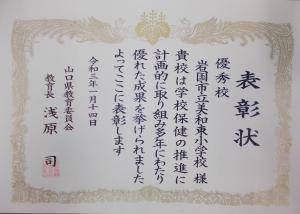 表彰状
優秀校
岩国市立美和東小学校 様
貴校は学校保健の推進に
計画的に取り組み多年にわたり
優れた成果を挙げられました
よってここに表彰します
令和三年一月十四日
山口県教育委員会
教育長 浅原 司